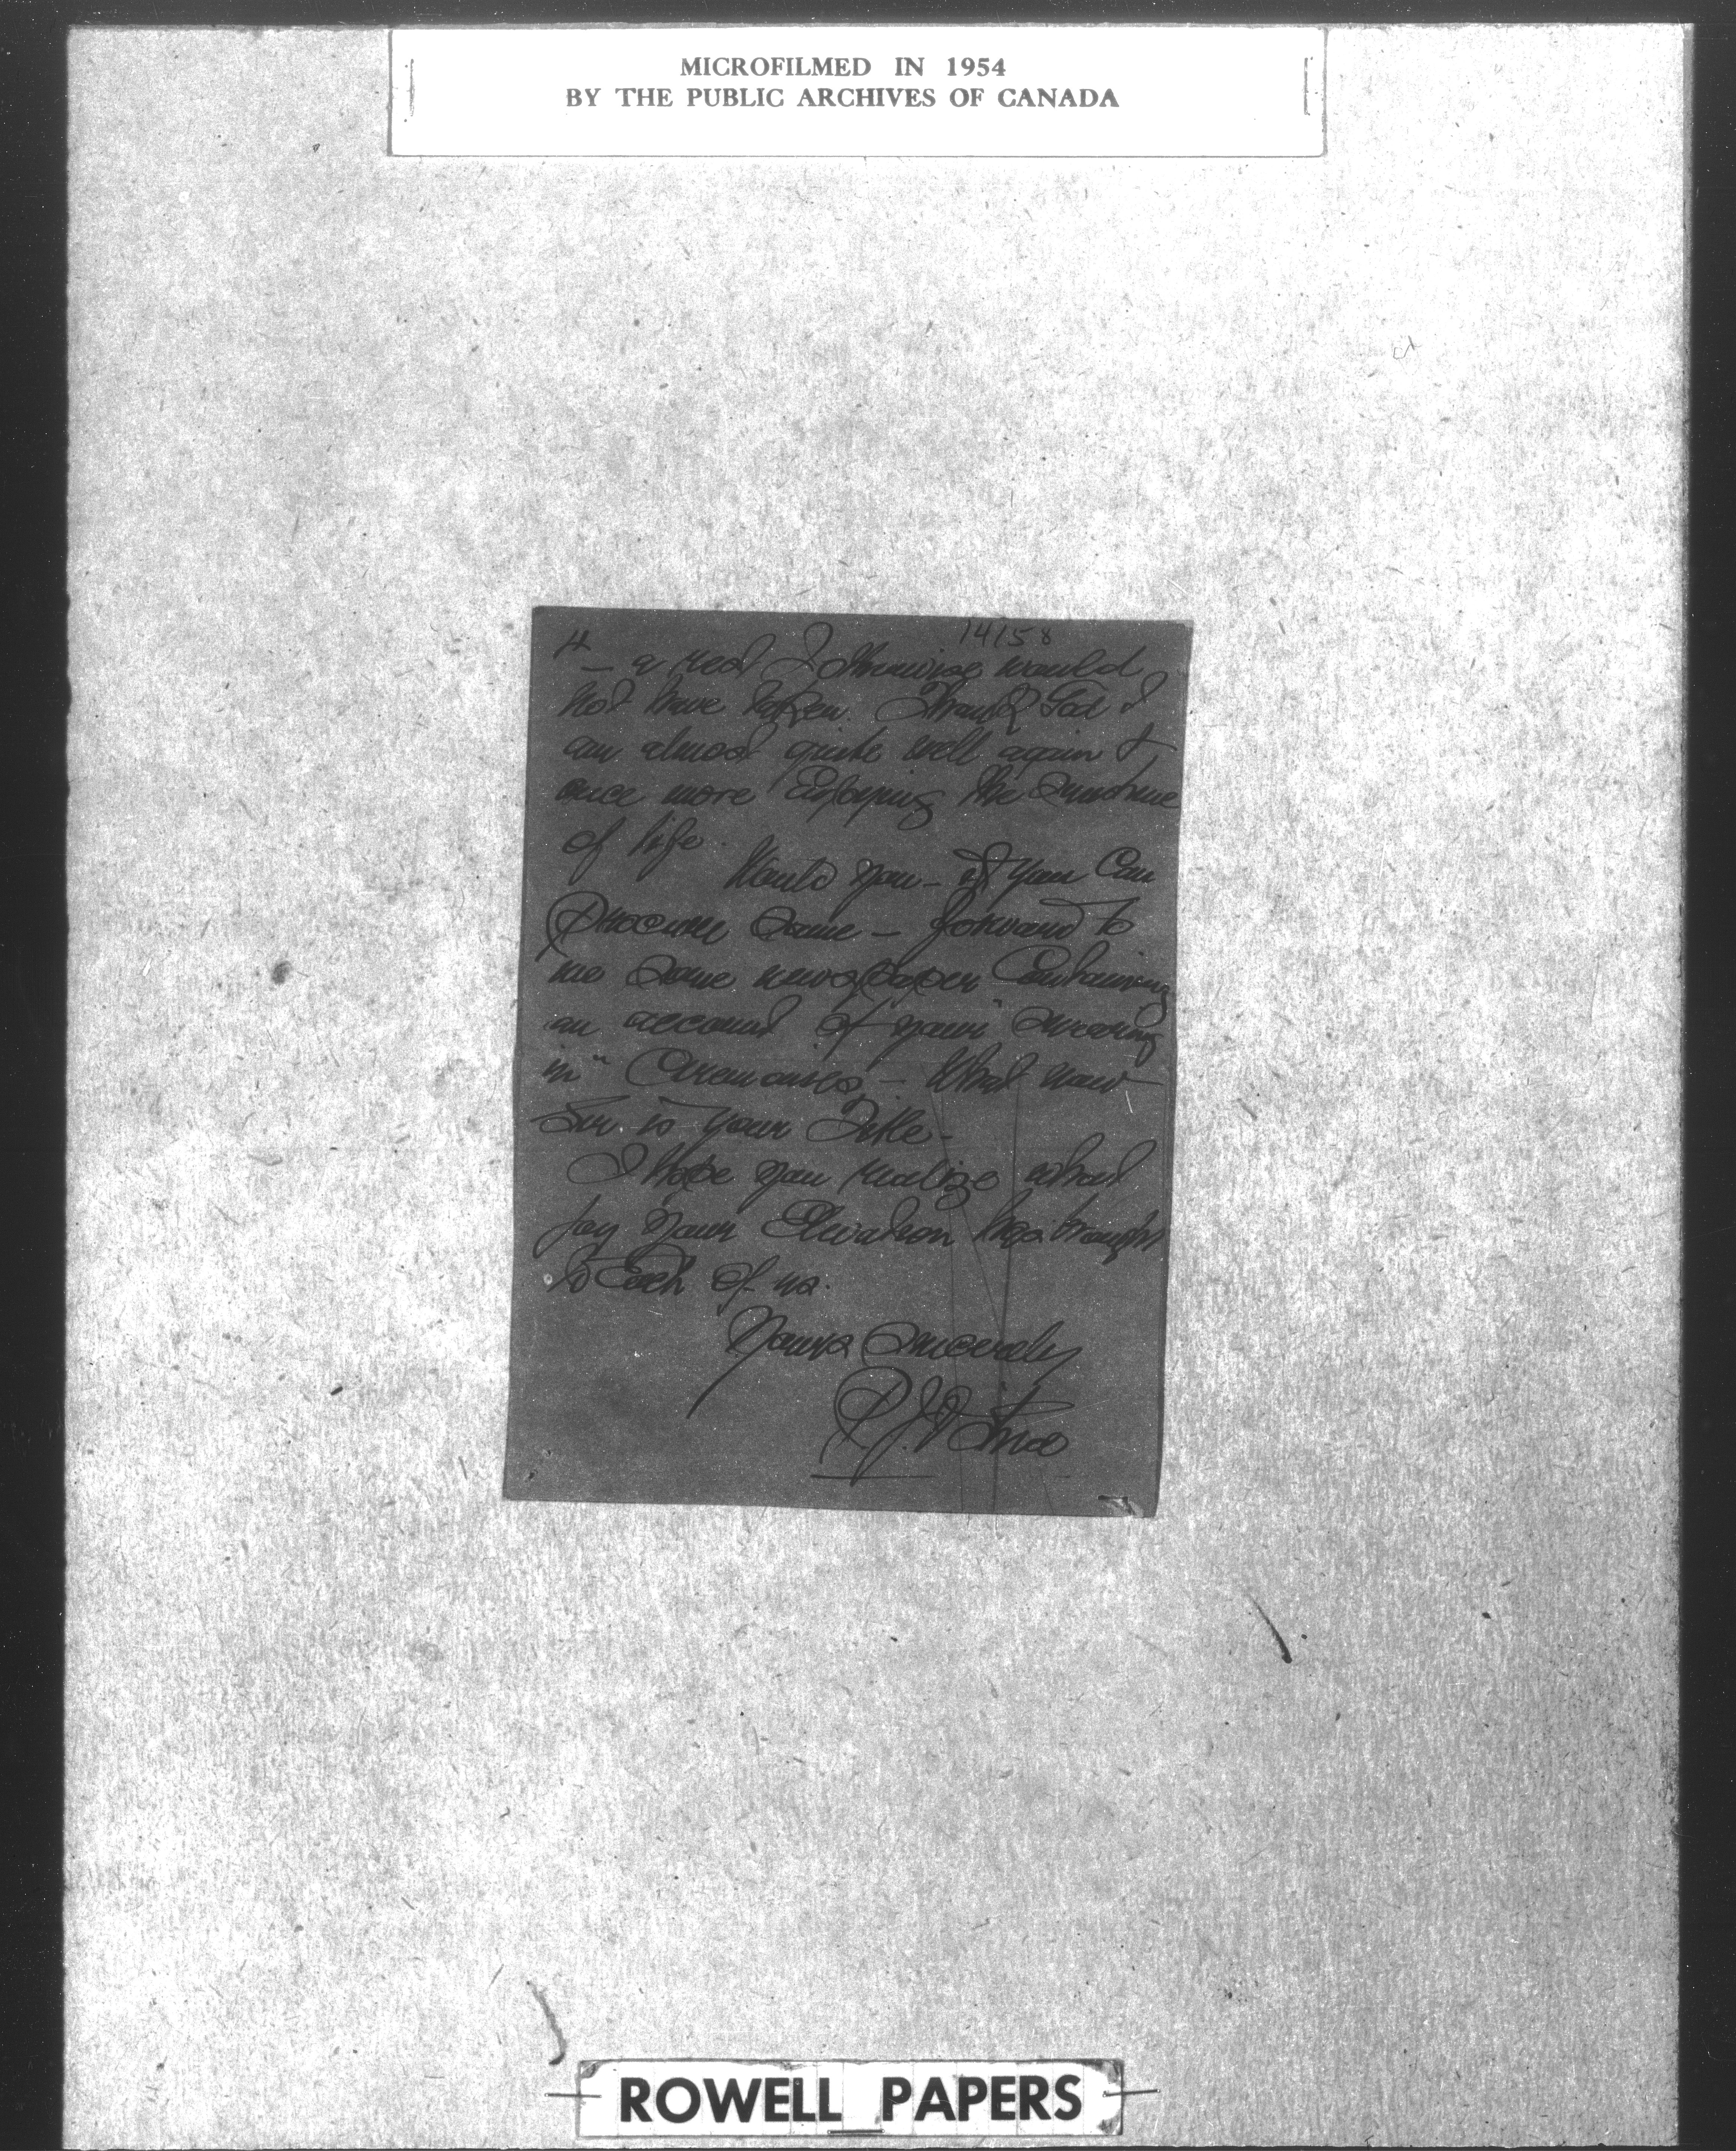 MICROFILMED IN 1954
BY THE PUBLIC ARCHIVES OF CANADA
14158
4
– a rest I otherwise would
not have taken. Thank God I
am almost quite well again &
once more Enjoying the Sunshine
of life.
Would you – if you Can
procure Same – forward to
me Some newspaper Containing
an account of your "Swearing
in" Ceremonies – What now
Sir is your Title –
I hope you realize what
joy your Elevation has brought
to Each of us.
Yours Sincerely
ROWELL PAPERS